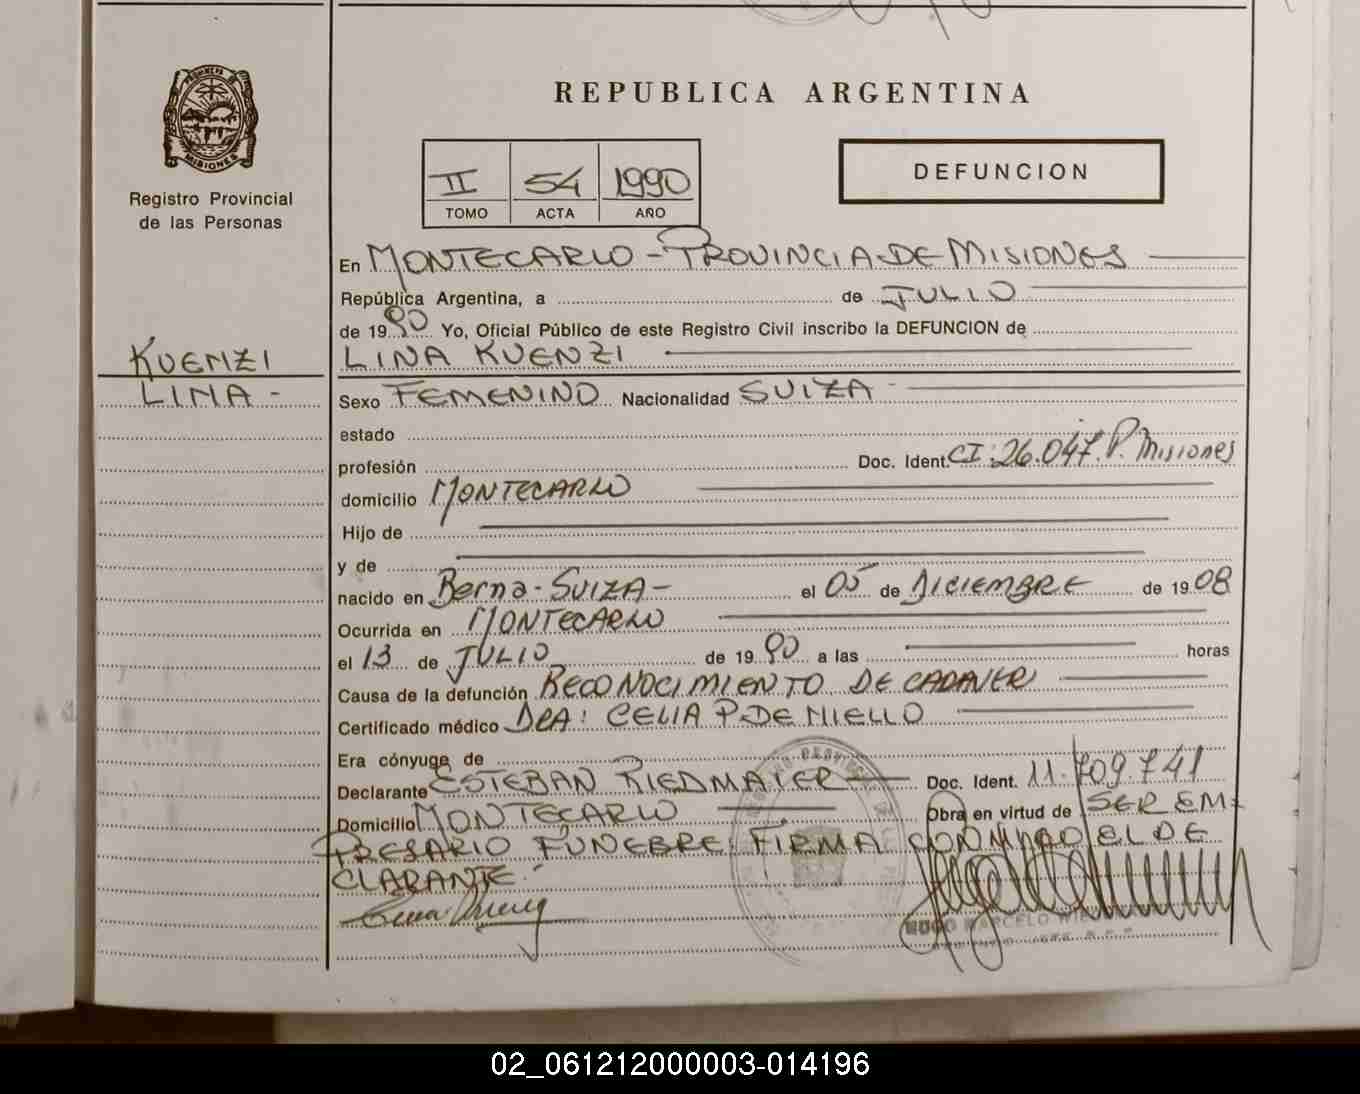 PROVINCIA DE
MISIONES
Registro Provincial
de las Personas
KUENZI
LINA -
REPUBLICA ARGENTINA
II 54 1990
TOMO ACTA AÑO
DEFUNCION
En MONTECARLO - PROVINCIA DE MISIONES
República Argentina, a de JULIO
de 1990 Yo, Oficial Público de este Registro Civil inscribo la DEFUNCION de
LINA KUENZI
Sexo FEMENINO Nacionalidad SUIZA -
estado
profesión Doc. Ident. CI: 26.047. P. Misiones
domicilio MONTECARLO
Hijo de
y de
nacido en Berna - SUIZA - el 05 de DICIEMBRE de 1908
Ocurrida en MONTECARLO
el 13 de JULIO de 1990 a las horas
Causa de la defunción RECONOCIMIENTO DE CADAVER
Certificado médico DRA: CELIA P. DE MIELLO
Era cónyuge de
Declarante ESTEBAN RIEDMAIER Doc. Ident. 11.709.741
Domicilio MONTECARLO Obra en virtud de SER EM=
PRESARIO FUNEBRE: FIRMA CONMIGO EL DE
CLARANTE.
MARCELO
02_061212000003-014196